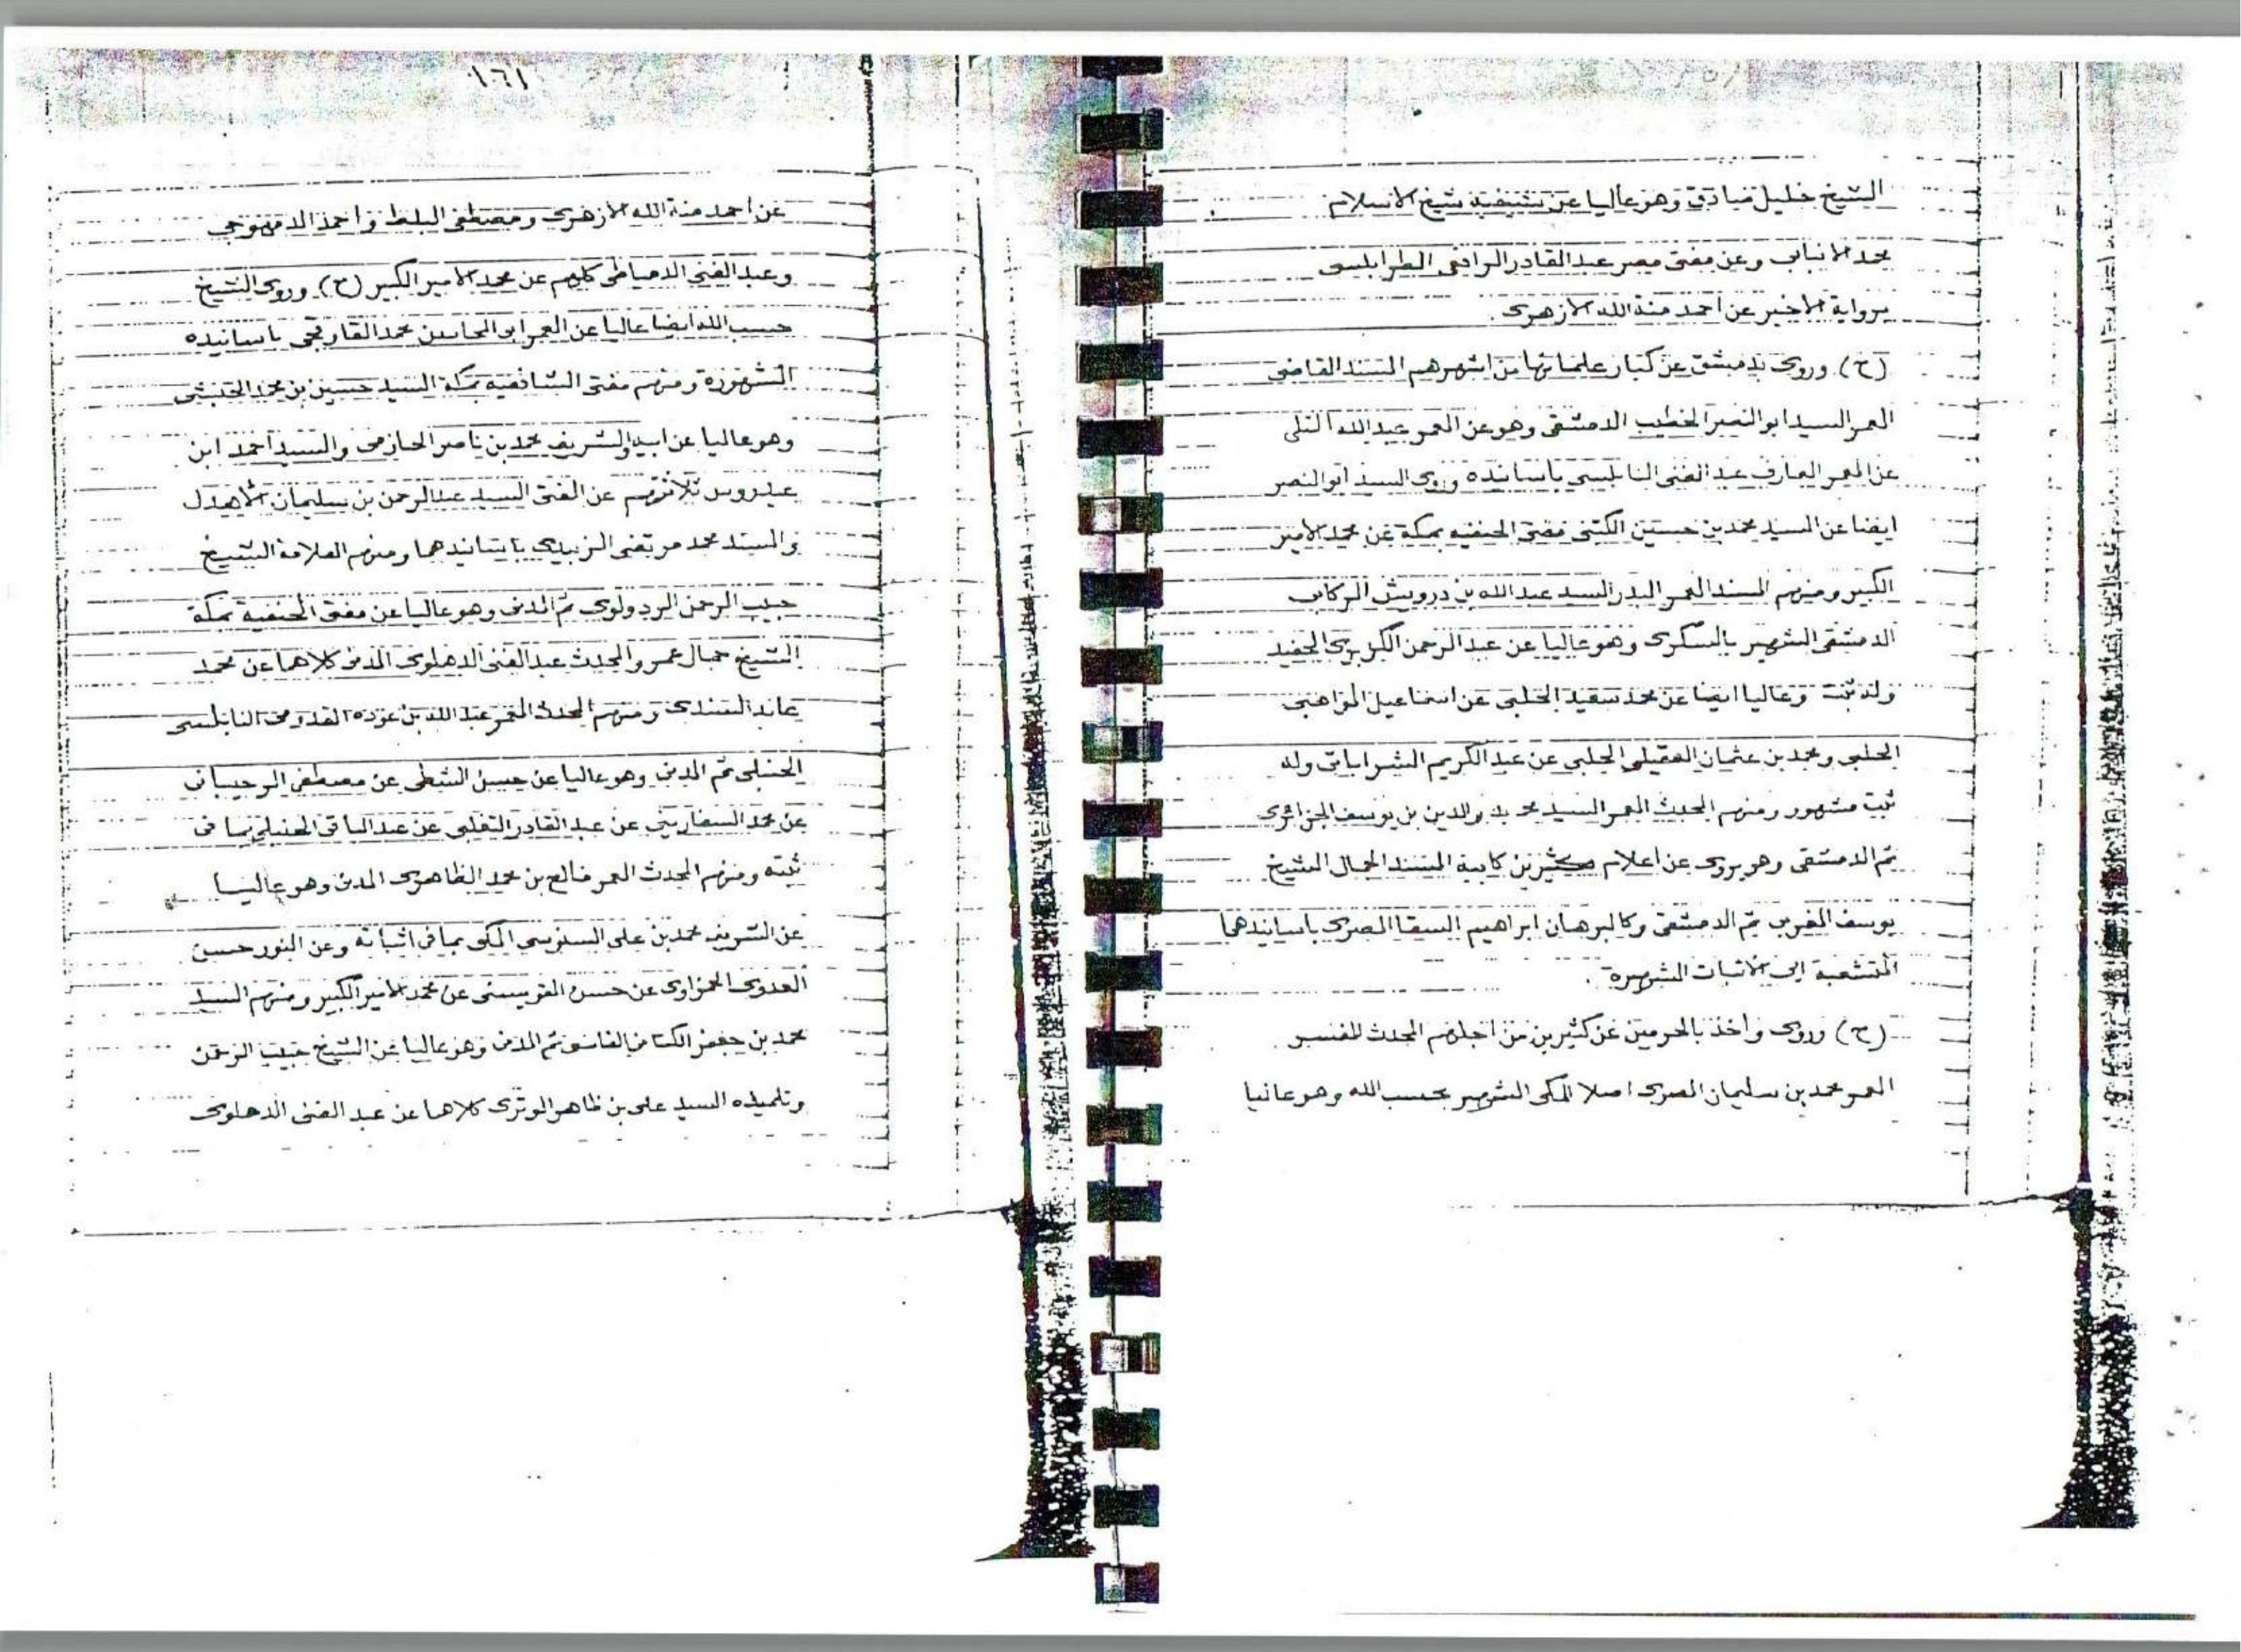 الشيخ خليل صادق وهو عاليا عن شيخه شيخ الاسلام
محمد الانبابى وعن مفتى مصر عبد القادر الرافعى الطرابلسى
برواية الاخير عن احمد منة الله الازهرى
(ح) وروى بدمشق عن كبار علمائها من اشهرهم المسند القاضى
المعمر السيد ابو النصر الخطيب الدمشقى وهو عن المعمر عبد الله التلى
عن المعمر العارف عبد الغنى النابلسى بأسانيده وروى السيد ابو النصر
ايضا عن السيد محمد بن حسين الكتبى مفتى الحنفيه بمكة عن محمد الامير
الكبير ومنهم المسند المعمر البدر السيد عبد الله بن درويش الركابى
الدمشقى الشهير بالسكرى وهو عاليا عن عبد الرحمن الكزبرى الحفيد
وله ثبت وعاليا ايضا عن محمد سعيد الحلبى عن اسماعيل المواهبى
الحلبى ومحمد بن عثمان العقيلى الحلبى عن عبد الكريم الشراباتى وله
ثبت مشهور ومنهم المحدث المعمر السيد محمد بدر الدين بن يوسف الجزائرى
ثم الدمشقى وهو يروى عن اعلام كثيرين كابيه المسند الجمال الشيخ
يوسف المغربى ثم الدمشقى وكالبرهان ابراهيم السقا المصرى باسانيدهما
المتشعبة الى الاثبات الشهيره
(ح) وروى واخذ بالحرمين عن كثيرين من اجلهم المحدث المفسر
المعمر محمد بن سليمان المصرى اصلا المكى الشهير بحسب الله وهو عاليا
١٦١
عن احمد منة الله الازهرى ومصطفى البلط واحمد الدمهوجى
وعبد الغنى الدمياطى كلهم عن محمد الامير الكبير (ح) وروى الشيخ
حسب الله ايضا عاليا عن المعمر ابو المحاسن محمد القاوقجى باسانيده
الشهورة ومنهم مفتى الشافعيه بمكة السيد حسين بن محمد الحبشى
وهو عاليا عن ابيه والشريف محمد بن ناصر الحازمى والسيد احمد ابن
عيدروس ثلاثتهم عن المفتى السيد عبد الرحمن بن سليمان الاهدل
والسيد محمد مرتضى الزبيدى باسانيدهما ومنهم العلامة الشيخ
حبيب الرحمن الردولوى ثم المدنى وهو عاليا عن مفتى الحنفية بمكة
الشيخ جمال عمر والمحدث عبد الغنى الدهلوى المدنى كلاهما عن محمد
عابد السندى ومنهم المحدث المعمر عبد الله بن عوده القدومى النابلسى
الحنبلى ثم المدنى وهو عاليا عن حسن الشطى عن مصطفى الرحيبانى
عن محمد السفارينى عن عبد القادر التغلبى عن عبد الباقى الحنبلى بما فى
ثبته ومنهم المحدث المعمر فالح بن محمد الظاهرى المدنى وهو عاليا
عن الشريف محمد بن على السنوسى المكى بما فى اثباته وعن النور حسن
العدوى الحمزاوى عن حسن القويسنى عن محمد الامير الكبير ومنهم السيد
محمد بن جعفر الكتانى الفاسى ثم المدنى وهو عاليا عن الشيخ حبيب الرحمن
وتلميذه السيد على بن ظاهر الوترى كلاهما عن عبد الغنى الدهلوى